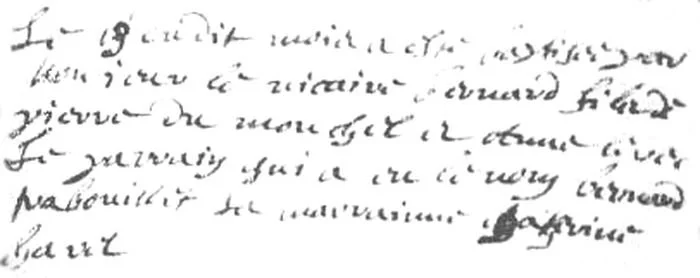 Le 19 dudit mois a esté baptisé par
monsieur le vicaire bernard fils de
pierre du mouchel et anne
Le parrain qui a eu le nom bernard
la marrainne Catherine
havet